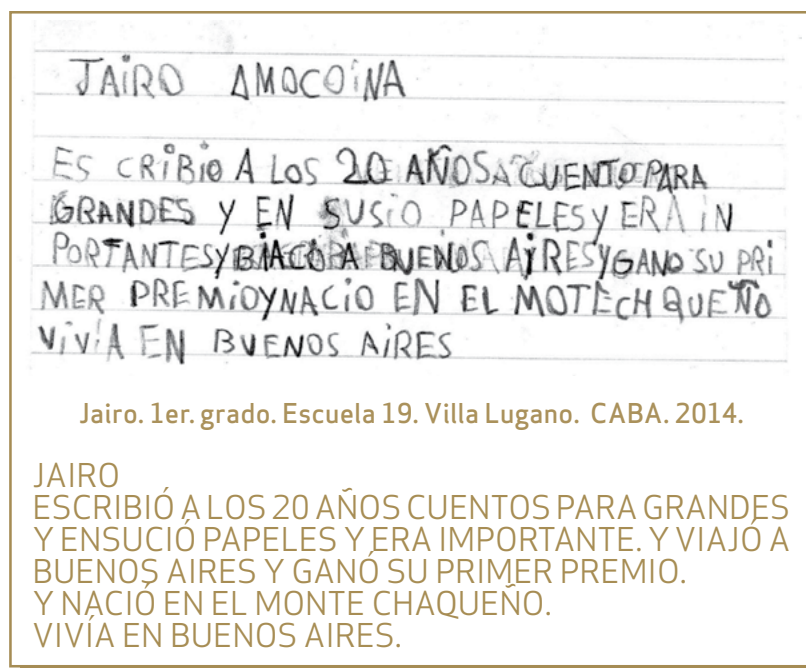 JAiRO AMOCOiNA
ES CRiBio A LOS 20 AÑOS A CUENTO PARA
GRANDES Y EN SUSiO PAPELES Y ERA iN
PORTANTES Y BIACO A BUENOS AiRES Y GANO SU PRi
MER PREMiO Y NACiO EN EL MOTECH QUEÑO
ViViA EN BUENOS AiRES
Jairo. 1er. grado. Escuela 19. Villa Lugano. CABA. 2014.
JAIRO
ESCRIBIÓ A LOS 20 AÑOS CUENTOS PARA GRANDES
Y ENSUCIÓ PAPELES Y ERA IMPORTANTE. Y VIAJÓ A
BUENOS AIRES Y GANÓ SU PRIMER PREMIO.
Y NACIÓ EN EL MONTE CHAQUEÑO.
VIVÍA EN BUENOS AIRES.